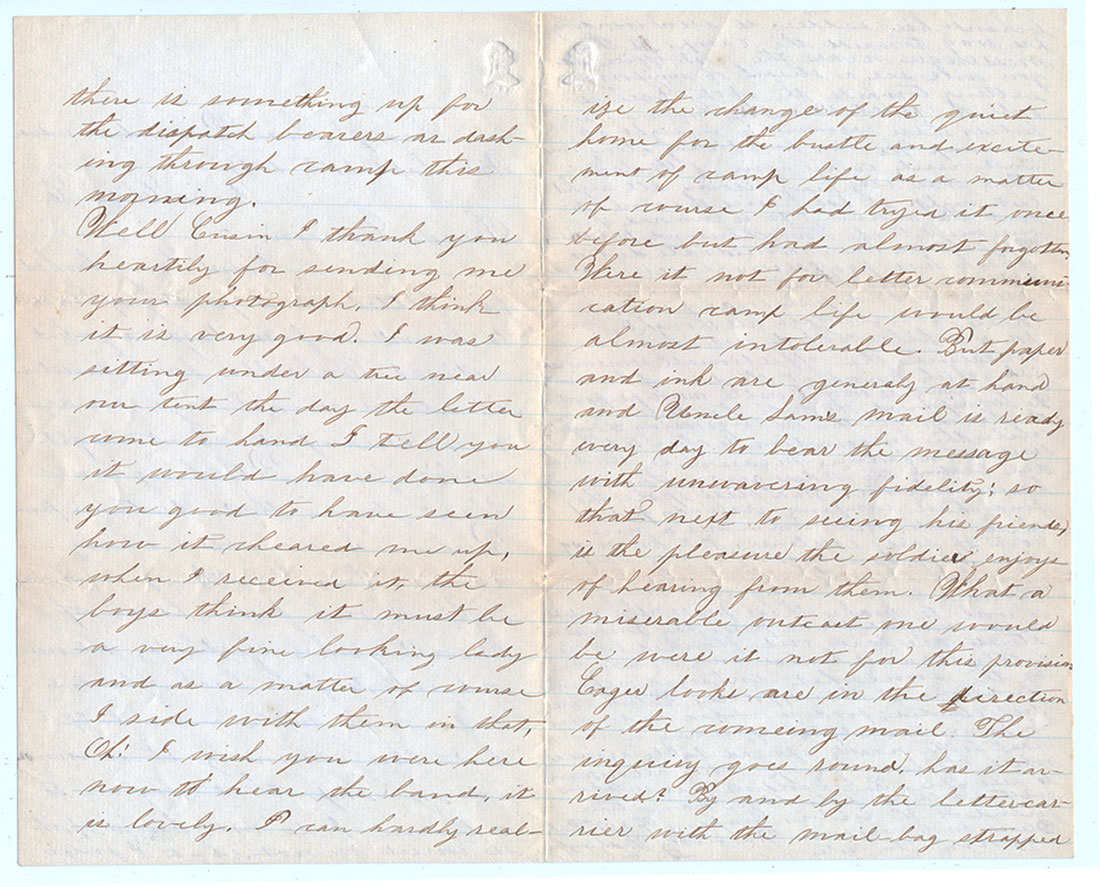 there is something up for
the dispatch bearers ar dash-
ing through camp this
morning.
Well Cusin I thank you
heartily for sending me
your photograph, I think
it is very good. I was
sitting under a tree near
our tent the day the letter
come to hand I tell you
it would have done
you good to have seen
how it cheared me up,
when I received it, the
boys think it must be
a very fine looking lady
and as a matter of course
I side with them in that,
Oh! I wish you were here
now to hear the band, it
is lovely. I can hardly real-
ize the change of the quiet
home for the bustle and excite-
ment of camp life as a matter
of course I had tryed it once
before but had almost forgotten.
Were it not for letter communi-
cation camp life would be
almost intolerable. But paper
and ink are generaly at hand
and Uncle Sams mail is ready
every day to bear the message
with unwavering fidelity; so
that next to seeing his friends,
is the pleasure the soldier enjoys
of hearing from them. What a
miserable outcast one would
be were it not for this provision
Eager looks are in the direction
of the comeing mail. The
inquiry goes round, has it ar-
rived? By and by the lettercar-
rier with the mail-bag strapped